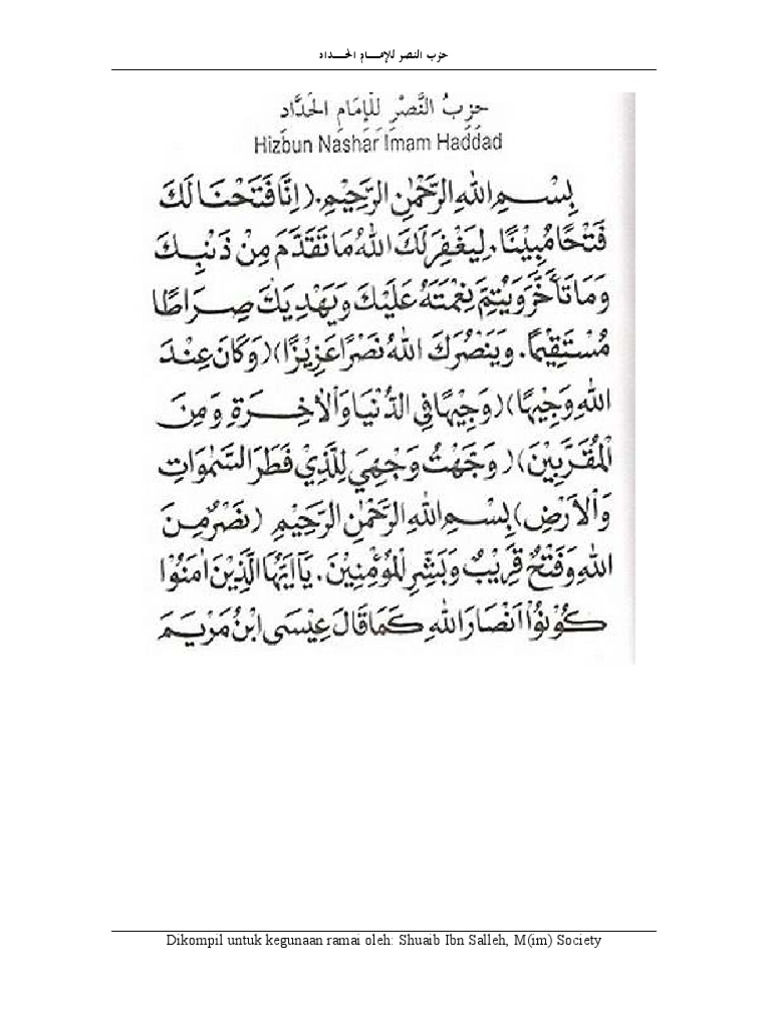 حزب النصر للإمـــام الحـــداد
حِزْبُ النَّصْرِ لِلْإِمَامِ الحَدَّادِ
Hizbun Nashar Imam Haddad
بِسْـــمِ اللهِ الرَّحْمٰنِ الرَّحِيْمِ. (اِنَّا فَتَحْنَا لَكَ
فَتْحًا مُبِيْنًا. لِيَغْفِرَ لَكَ اللهُ مَا تَقَدَّمَ مِنْ ذَنْبِكَ
وَمَا تَأَخَّرَ وَيُتِمَّ نِعْمَتَهُ عَلَيْكَ وَيَهْدِيَكَ صِرَاطًا
مُسْتَقِيْمًا. وَيَنْصُرَكَ اللهُ نَصْرًا عَزِيْزًا) (وَكَانَ عِنْدَ
اللهِ وَجِيْهًا) (وَجِيْهًا فِي الدُّنْيَا وَالْاٰخِــرَةِ وَمِنَ
الْمُقَرَّبِيْنَ) (وَجَّهْتُ وَجْهِيَ لِلَّذِيْ فَطَرَ السَّمٰوَاتِ
وَالْاَرْضِ) بِسْــمِ اللهِ الرَّحْمٰنِ الرَّحِيْمِ (نَصْرٌ مِنَ
اللهِ وَفَتْحٌ قَرِيْبٌ وَبَشِّرِ الْمُؤْمِنِيْنَ. يَآ اَيُّهَا الَّذِيْنَ اٰمَنُوْا
كُوْنُوْا اَنْصَارَ اللهِ كَمَا قَالَ عِيْسَى ابْنُ مَرْيَمَ
Dikompil untuk kegunaan ramai oleh: Shuaib Ibn Salleh, M(im) Society